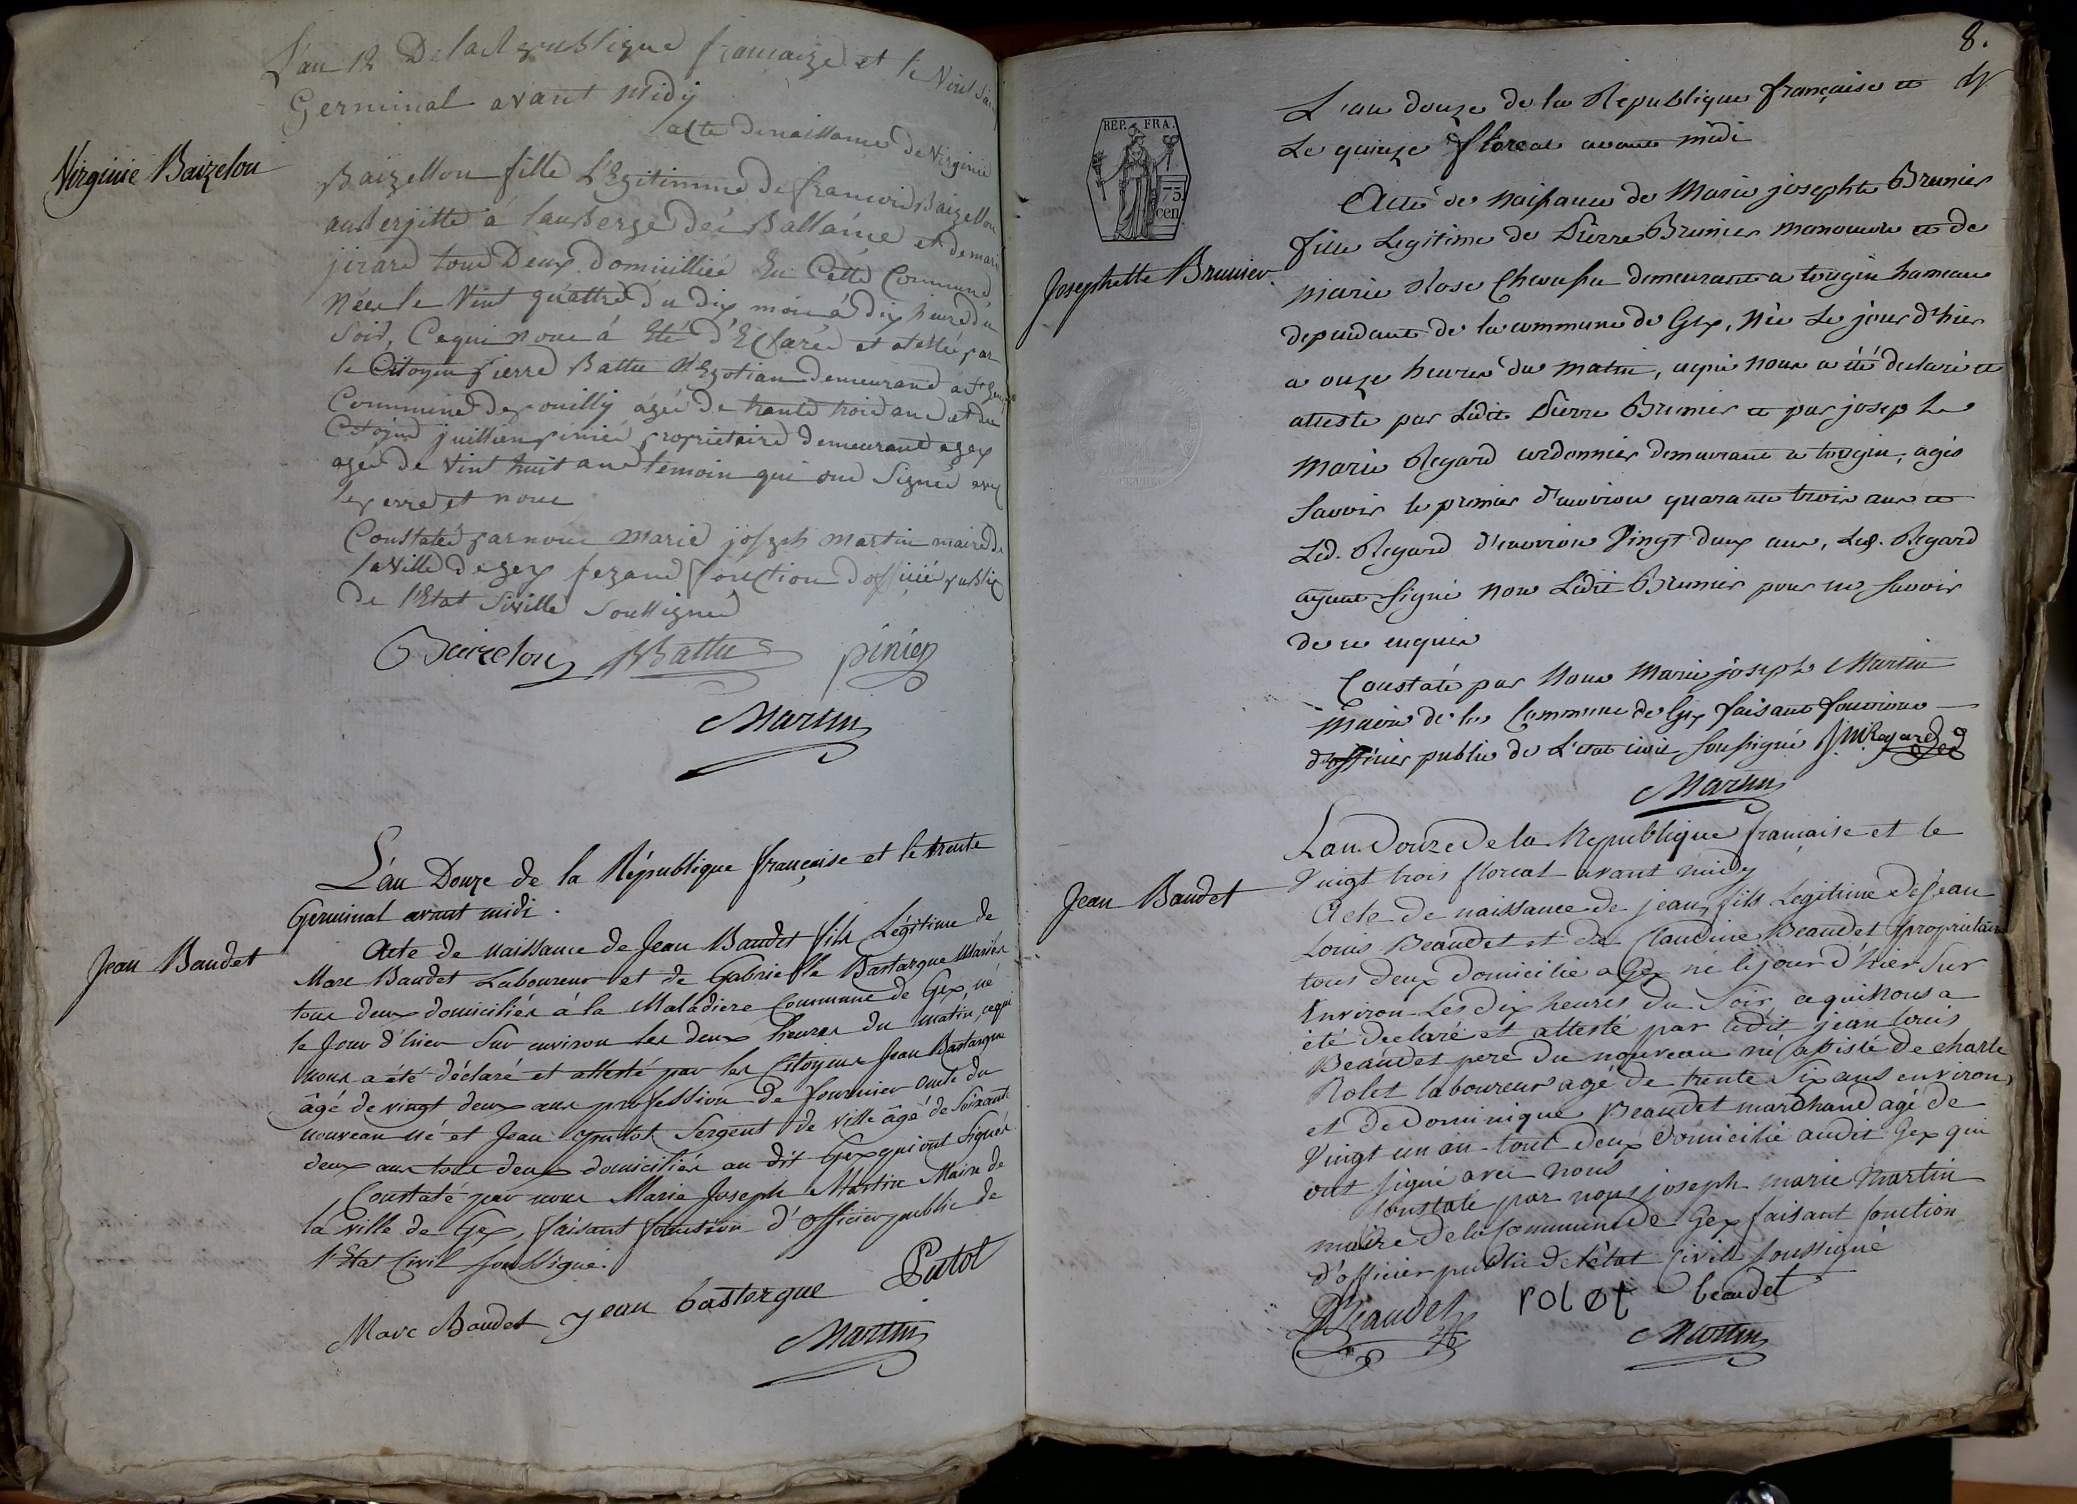 L'an 12 De la Republique francaize et le Vint
Germinal avant Midÿ
l'acte de naissance de Virginie
Virginie Baizelon
Baizellon fille l'Egitimme de francois Baizellon
auberjitte a l'auberge dei Ballance et de mari
jirard tous Deux domicilliéé En Cette Commune,
néé le Vint quattre du dix moi á dix heure du
soir, Ce qui nous á Eté d'Eclaréé et atesté par
le Citoyen pierre Battu Négotian demeurand a St
Commune de pouilly agéé de trante trois ans et du
Citojen juillien piniéé proprietaire demeurant a gex
agéé de Vint huit ans temoin qui ont Signéé avec
le perre et nous
Constaté par nous marie joseph martin maire de
la Ville de gex fezand fonction d'officié public
de l'Etat Siville Soussigné
Baizelon Battu pinier
Martin
L'an Douze de la République française et le trente
Germinal avant midi.
Jean Baudet
Acte de naissance de Jean Baudet fils Légitime de
Marc Baudet Laboureur et de Gabrielle Bastargue Mariés
tous deux domiciliés à la Maladiere Commune de Gex, né
le Jour d'hier Sur environ les deux heures du matin, ce qui
nous a été déclaré et attesté par les Citoyens Jean Bastargue
âgé de vingt deux ans profession de fournier oncle du
nouveau né et Jean Putot Sergent de Ville âgé de Soixante
deux ans tous deux domiciliés au dit Gex qui ont signés
Constaté par nous Marie Joseph Martin Maire de
la ville de Gex, faisant fonction d'officier public de
l'Etat Civil soussigné.
Marc Baudet jean bastergue Putot
Martin
8.
L'an douze de la Republique française et
Le quinze floreal avant midi
REP. FRA.
75
cen
Josephette Brunier
Acte de naissance de Marie josephte Brunier
fille Legitime de Pierre Brunier manouvre et de
marie Rose demeurant a tougin hameau
dependant de la commune de Gex, née Le jour d'hier
a onze heures du matin, ce qui nous a été declaré et
atteste par Ledit Pierre Brunier et par joseph
Marie Regard cordonnier demeurant a tougin, agés
savoir le premier d'environ quarante trois ans et
Led. Regard d'environ Vingt deux ans, Led. Regard
ayant signé non Ledit Brunier pour ne savoir
de ce enquis
Constaté par Nous Marie joseph Martin
Maire de la Commune de Gex faisant fonctions
d'officier public de L'etat civil soussigné J. M. Regard
Martin
L'an Douze De la République francaise et le
Vingt trois floreal avant midy
Jean Baudet
Acte de naissance de jean, fils Legitime de Jean
Louis Beaudet et de Claudine Beaudet proprietaire
tous deux domicilié a Gex né le jour d'hier sur
Environ Les dix heures du Soir, ce qui nous a
été declaré et attesté par ledit jean louis
Beaudet pere du nouveau né assisté de charle
Rolet laboureur agé de trente Six ans environ,
et de Dominique Beaudet marchand agé de
Vingt un an tout deux domicilié audit Gex qui
ont signé avec nous
Constaté par nous joseph marie Martin
maire de la Commune de Gex faisant fonction
d'officier public de létat Civil soussigné
Beaudet rolet beaudet
Martin